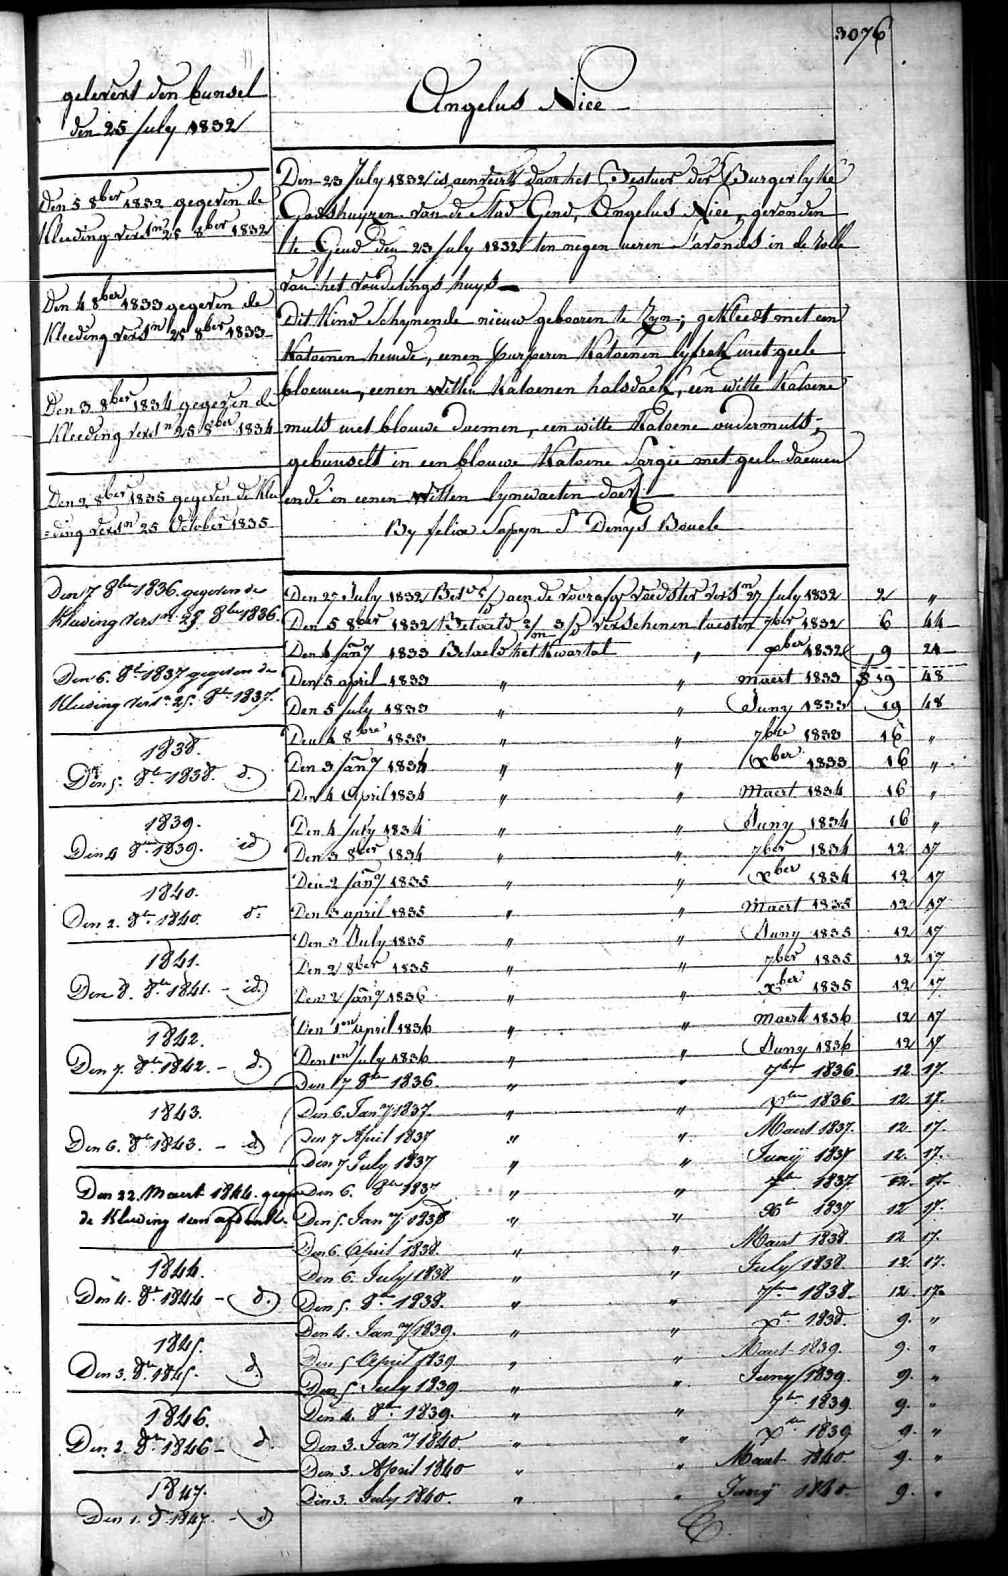 3076
Angelus Nicé
gelevert den bunsel
den 25 July 1832
Den 5 8ber 1832 gegeven de
Kleeding versn 25 8ber 1832
Den 4 8ber 1833 gegeven de
Kleeding versn 25 8ber 1833
Den 3 8ber 1834 gegeven de
Kleeding versn 25 8ber 1834
Den 2 8ber 1835 gegeven de Klee
=ding versn 25 October 1835
Den 7 8ber 1836. gegeven de
Kleeding versn 25 8ber 1836.
Den 6. 8r 1837 gegeven de
Kleeding versn 25. 8r 1837.
1838.
Den 5. 8r 1838. d.
1839.
Den 4 8r 1839. id
1840.
Den 2. 8r 1840. d.
1841.
Den 8. 8r 1841. - id.
1842.
Den 7. 8r 1842. - d.
1843.
Den 6. 8r 1843. - d
Den 22. Maert 1844. gegeven
de Kleeding
1844.
Den 4. 8r 1844 - d.
1845.
Den 3. 8r 1845. d.
1846.
Den 2. 8r 1846 - d.
1847.
Den 1. 8r 1847. - d
Den 23 July 1832 is aenveerdt door het Bestuer der Burgerlyke
Godshuyzen van de Stad Gend, Angelus Nicé, gevonden
te Gend den 23 July 1832 ten negen ueren s'avonds in de rolle
van het vondelings huys
Dit Kind schynende nieuw gebooren te zyn; gekleedt met een
Katoenen hemde, eenen purperen Katoenen lyfrok met geele
bloemen, eenen witten Katoenen halsdoek, een witte Katoene
muts met blouwe bloemen, een witte Katoene ondermuts,
gebunselt in een blouwe Katoene Sargie met geele bloemen
ende in eenen witten lynwaeten doek
By felix Sapyn St Denys Boucle
Den 27 July 1832 Bet aen de voedster versn 27 July 1832 2 "
Den 5 8ber 1832 Betaeld 2/m 3/d verschenen laesten 7ber 1832 6 44
Den 4 Jany 1833 Betaeld het Kwartal " Xber 1832 9 24
Den 5 april 1833 " " Maert 1833 19 48
Den 5 July 1833 " " Juny 1833 19 48
Den 4 8bre 1833 " " 7bre 1833 16 "
Den 3 Jany 1834 " " Xber 1833 16 "
Den 4 April 1834 " " Maert 1834 16 "
Den 4 July 1834 " " Juny 1834 16 "
Den 3 8ber 1834 " " 7ber 1834 12 17
Den 2 Jany 1835 " " Xber 1834 12 17
Den 3 april 1835 " " Maert 1835 12 17
Den 3 July 1835 " " Juny 1835 12 17
Den 2 8ber 1835 " " 7ber 1835 12 17
Den 2 Jany 1836 " " Xber 1835 12 17
Den 1en April 1836 " " Maert 1836 12 17
Den 1en July 1836 " " Juny 1836 12 17
Den 7 8br 1836. " " 7br 1836. 12 17.
Den 6. Jany 1837. " " Xbr 1836 12 17.
Den 7 April 1837 " " Maert 1837. 12 17.
Den 7 July 1837 " " Juny 1837 12. 17.
Den 6. 8br 1837 " " 7br 1837 12. 17.
Den 5. Jany 1838 " " Xbr 1837 12 17.
Den 6. April 1838. " " Maert 1838. 12 17.
Den 6. July 1838 " " July 1838. 12. 17.
Den 5. 8br 1838. " " 7br 1838. 12. 17.
Den 4. Jany 1839. " " Xbr 1838. 9. "
Den 5 April 1839 " " Maert 1839. 9. "
Den 5 July 1839 " " Juny 1839. 9. "
Den 4. 8br 1839. " " 7br 1839. 9. "
Den 3. Jany 1840. " " Xbr 1839 9. "
Den 3. April 1840 " " Maert 1840. 9. "
Den 3. July 1840. " " Juny 1840 9. "